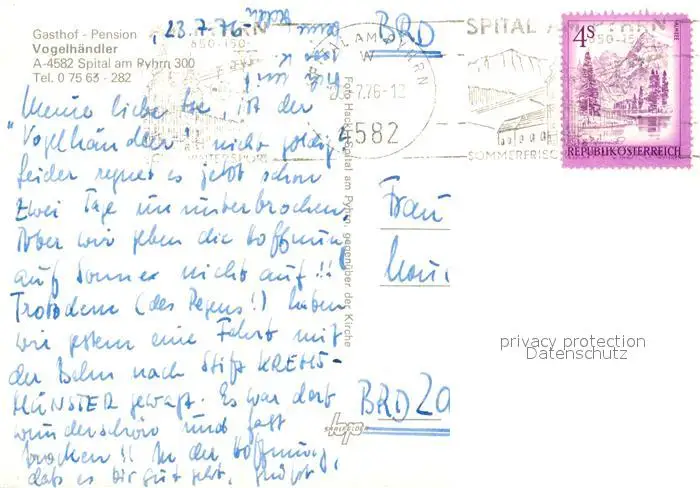 Gasthof - Pension
Vogelhändler
A-4582 Spital am Pyhrn 300
Tel. 0 75 63 - 282
23.7.76
Meine liebe ist der
"Vogelhändler" nicht goldig?
Leider regnet es jetzt schon
zwei Tage ununterbrochen.
Aber wir geben die Hoffnung
auf Sonne nicht auf!!
Trotzdem (des Regens!) haben
wir gestern eine Fahrt mit
der Bahn nach Stift KREMS-
MÜNSTER gewagt. Es war dort
wunderschön und fast
trocken!! In der Hoffnung,
daß es Dir gut geht, grüßt
BRD
SPITAL AM PYHRN
650-150
4582
SOMMERFRISC
WINTERSPORT
4S
ALMSEE
REPUBLIK ÖSTERREICH
Foto Hac Spital am Pyhrn, gegenüber der Kirche
Frau
BRD
privacy protection
Datenschutz